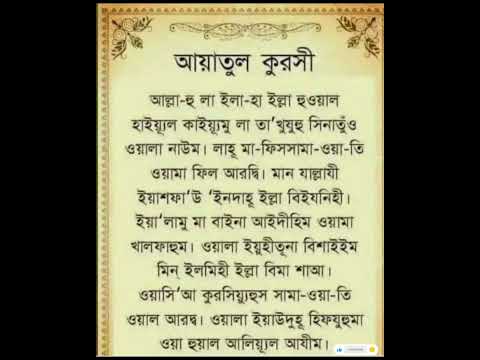 আয়াতুল কুরসী
আল্লা-হু লা ইলা-হা ইল্লা হুওয়াল
হাইয়্যূল কাইয়্যূমু লা তা’খুযুহু সিনাতুঁও
ওয়ালা নাউম। লাহূ মা-ফিসসামা-ওয়া-তি
ওয়ামা ফিল আরদ্বি। মান যাল্লাযী
ইয়াশফা’উ ’ইনদাহূ ইল্লা বিইযনিহী।
ইয়া’লামু মা বাইনা আইদীহিম ওয়ামা
খালফাহুম। ওয়ালা ইয়ুহীতূনা বিশাইইম
মিন্ ইলমিহী ইল্লা বিমা শাআ।
ওয়াসি’আ কুরসিয়্যুহুস সামা-ওয়া-তি
ওয়াল আরদ্ব। ওয়ালা ইয়াউদুহূ হিফযুহুমা
ওয়া হুয়াল আলিয়্যূল আযীম।